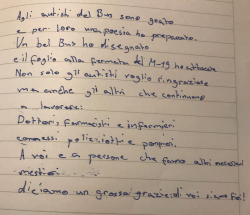 Agli autisti del Bus sono grato
e per loro una poesia ho preparato.
Un bel Bus ho disegnato
e il foglio alla fermata del M-19 ho attaccato
Non solo gli autisti voglio ringraziare
ma anche gli altri che continuano
a lavorare:
Dottori, farmacisti e infermieri
commessi, poliziotti e pompieri.
A voi e a persone che fanno altri necessari
mestieri.......
diciamo un grosso grazie: di voi siamo fieri